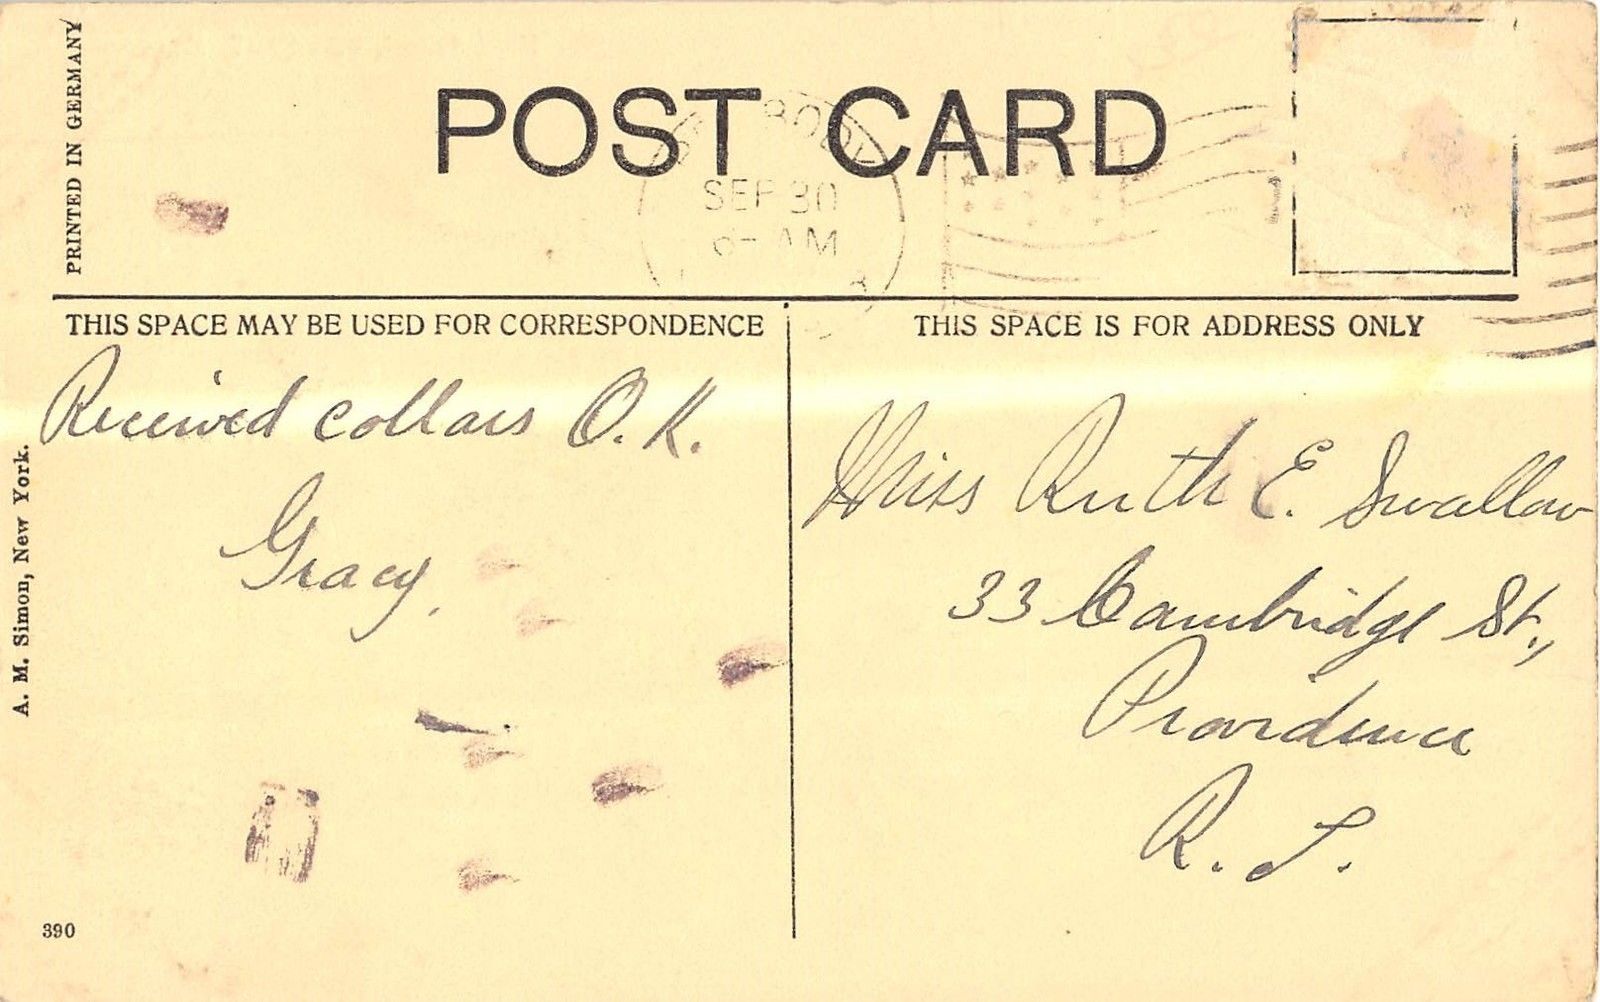 PRINTED IN GERMANY
POST CARD
SEP 30
AM
THIS SPACE MAY BE USED FOR CORRESPONDENCE
THIS SPACE IS FOR ADDRESS ONLY
Received collars O.K.
Gracy.
Miss Ruth E. Swallow
33 Cambridge St.,
Providence
R. I.
A. M. Simon, New York.
390